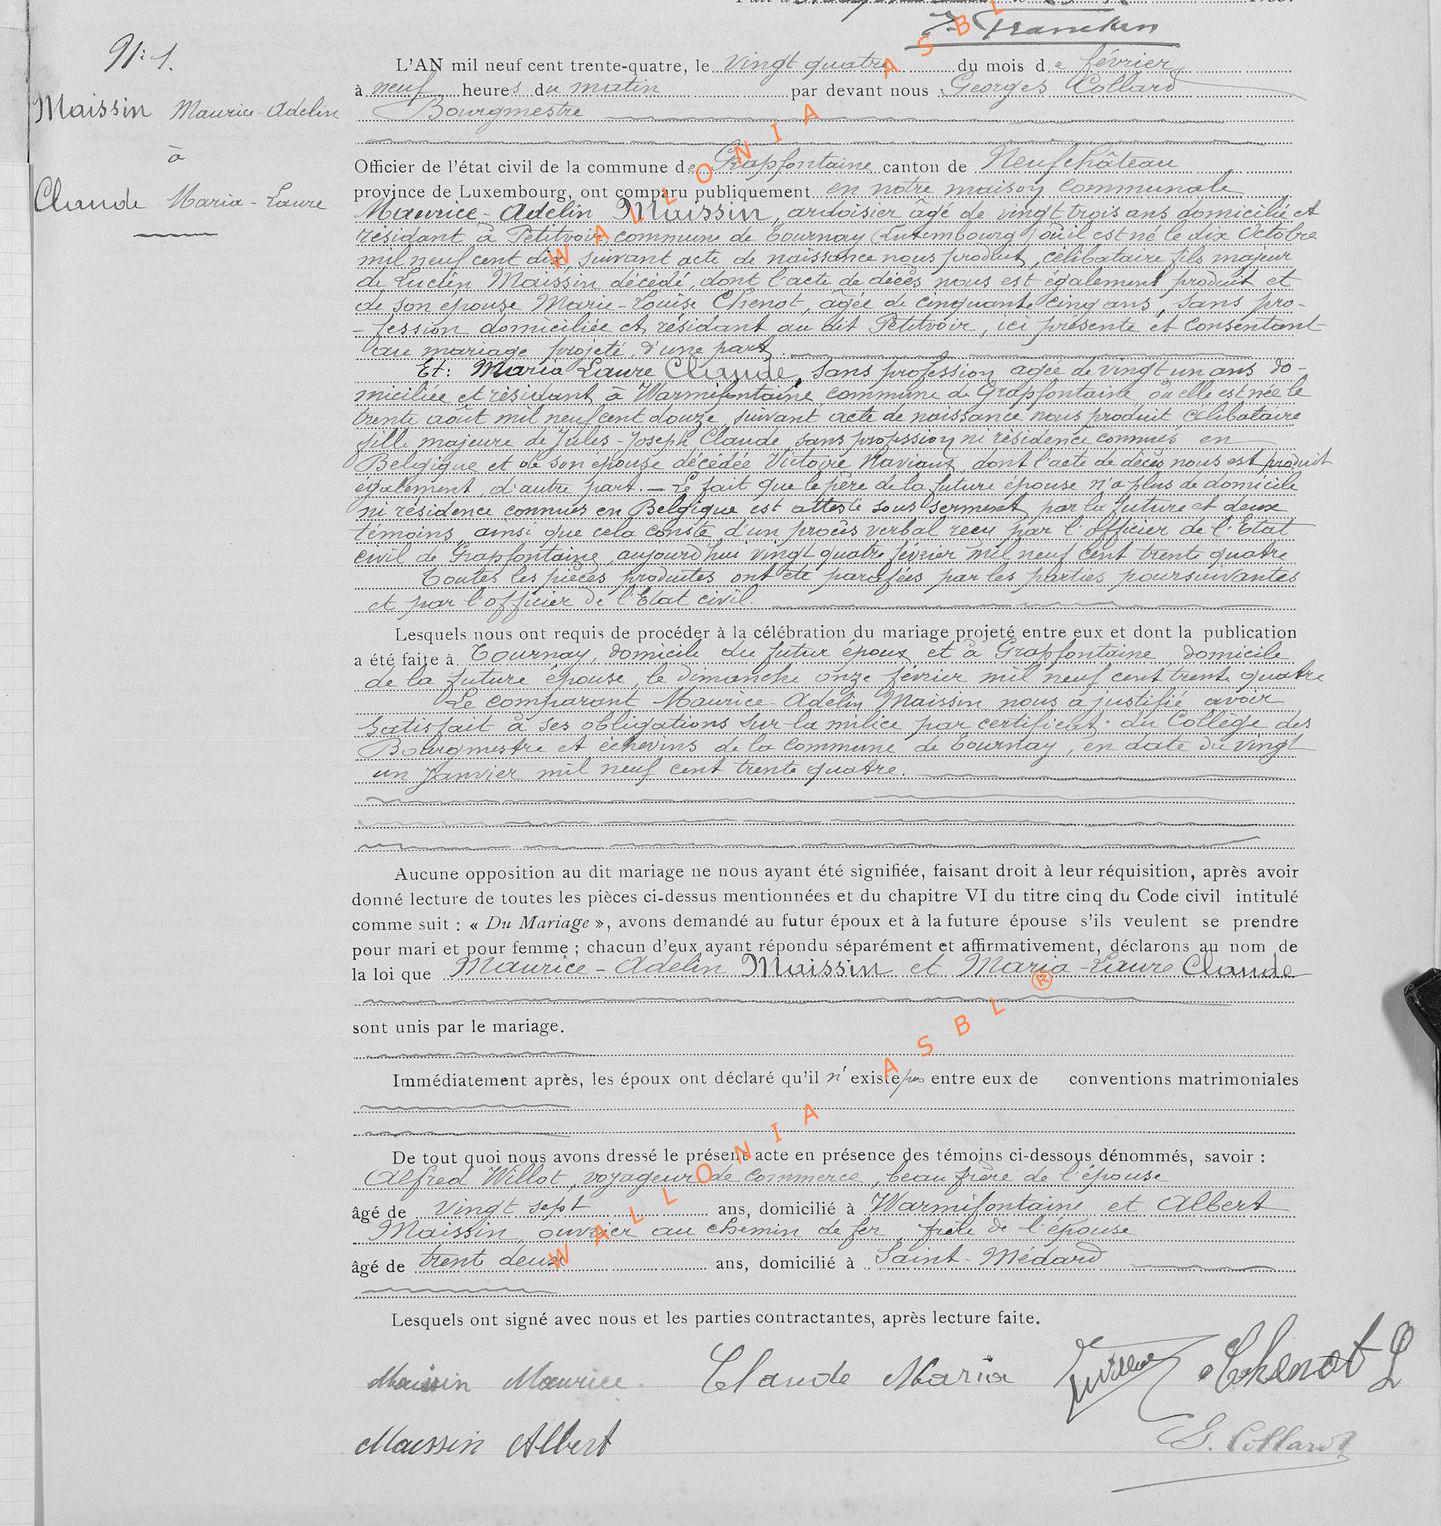 J. Francken
N: 1.
Maissin Maurice-Adelin
à
Claude Maria-Laure
L'AN mil neuf cent trente-quatre, le vingt quatre du mois de février
à neuf heures du matin par devant nous Georges Collard
Bourgmestre
Officier de l'état civil de la commune de Grapfontaine canton de Neufchâteau
province de Luxembourg, ont comparu publiquement en notre maison communale
Maurice-Adelin Maissin, ardoisier âgé de vingt trois ans domicilié et
résidant à Petitvoir commune de Tournay (Luxembourg) où il est né le dix Octobre
mil neuf cent dix, suivant acte de naissance nous produit, célibataire fils majeur
de Lucien Maissin décédé, dont l'acte de décès nous est également produit et
de son épouse Marie-Louise Chenot, âgée de cinquante cinq ans, sans pro-
-fession domiciliée et résidant au dit Petitvoir, ici présente et consentant
au mariage projeté, d'une part.
Et: Maria Laure Claude, sans profession agée de vingt un ans do-
miciliée et résidant à Warmifontaine commune de Grapfontaine, où elle est née le
trente août mil neuf cent douze, suivant acte de naissance nous produit, célibataire
fille majeure de Jules-Joseph Claude, sans profession ni résidence connues en
Belgique et de son épouse décédée Victoire Naviaux dont l'acte de décès nous est produit
également, d'autre part. — Le fait que le père de la future épouse n'a plus de domicile
ni résidence connues en Belgique est attesté sous serment par la future et deux
témoins, ainsi que cela conste d'un procès verbal reçu par l'officier de l'Etat
civil de Grapfontaine, aujourd'hui vingt quatre février mil neuf cent trente quatre
Toutes les pièces produites ont été parafées par les parties poursuivantes
et par l'officier de l'Etat civil.
Lesquels nous ont requis de procéder à la célébration du mariage projeté entre eux et dont la publication
a été faite à Tournay, domicile du futur époux et à Grapfontaine domicile
de la future épouse, le dimanche onze février mil neuf cent trente quatre
Le comparant Maurice-Adelin Maissin nous a justifié avoir
satisfait à ses obligations sur la milice par certificat du Collège des
Bourgmestre et échevins de la commune de Tournay, en date du vingt
un Janvier mil neuf cent trente quatre.
Aucune opposition au dit mariage ne nous ayant été signifiée, faisant droit à leur réquisition, après avoir
donné lecture de toutes les pièces ci-dessus mentionnées et du chapitre VI du titre cinq du Code civil intitulé
comme suit : « Du Mariage », avons demandé au futur époux et à la future épouse s'ils veulent se prendre
pour mari et pour femme ; chacun d'eux ayant répondu séparément et affirmativement, déclarons au nom de
la loi que Maurice-Adelin Maissin et Maria-Laure Claude
sont unis par le mariage.
Immédiatement après, les époux ont déclaré qu'il n'existe pas entre eux de conventions matrimoniales
De tout quoi nous avons dressé le présent acte en présence des témoins ci-dessous dénommés, savoir :
Alfred Willot, voyageur de commerce, beau frère de l'épouse
âgé de vingt sept ans, domicilié à Warmifontaine et Albert
Maissin, ouvrier au chemin de fer, frère de l'épouse
âgé de trent deux ans, domicilié à Saint-Médard
Lesquels ont signé avec nous et les parties contractantes, après lecture faite.
Maissin Maurice. Claude Maria Chenot L
Maissin Albert G. Collard
WALLONIA ASBL
WALLONIA ASBL ®